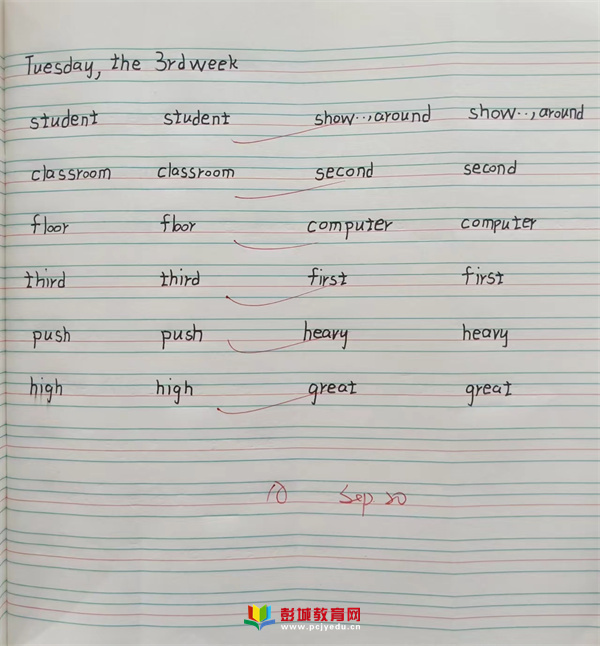 Tuesday, the 3rd week
student student show..., around show..., around
classroom classroom second second
floor floor computer computer
third third first first
push push heavy heavy
high high great great
10 Sep 20
彭城教育网
www.pcjyedu.cn